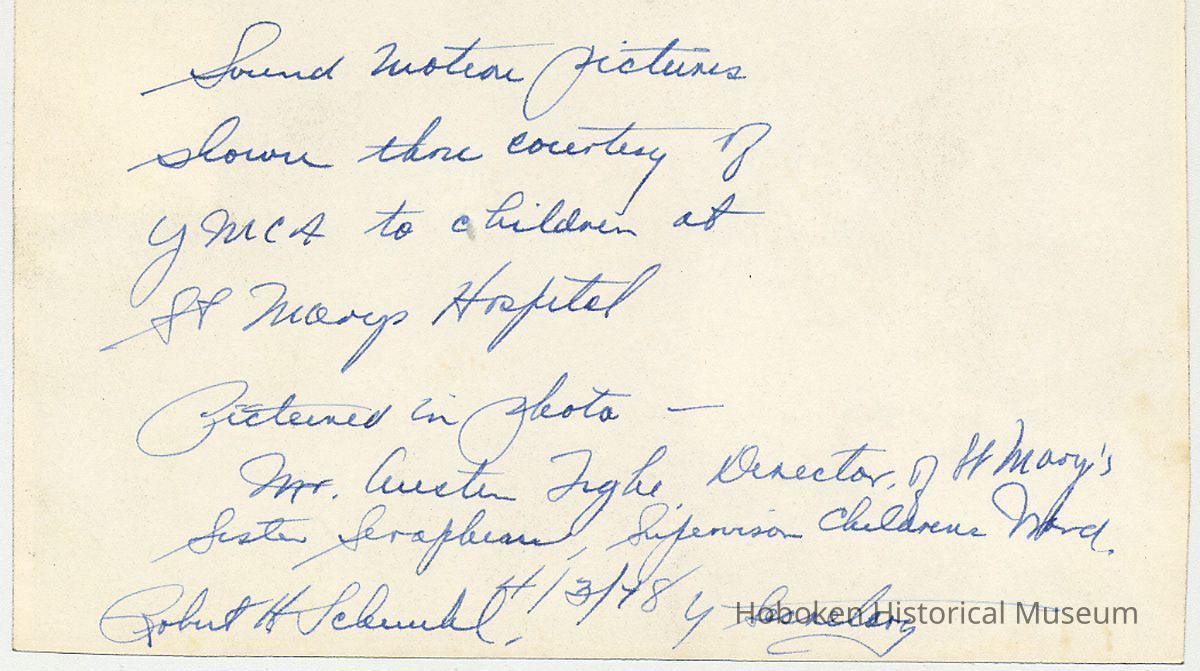 Sound motion pictures
shown thru courtesy of
YMCA to children at
St Marys Hospital
Pictured in photo —
Mr. Austin Tighe, Director, of St Mary's
Sister Seraphim, Supervisor Childrens Ward.
Robert H 4/3/48 Y Secretary
Hoboken Historical Museum